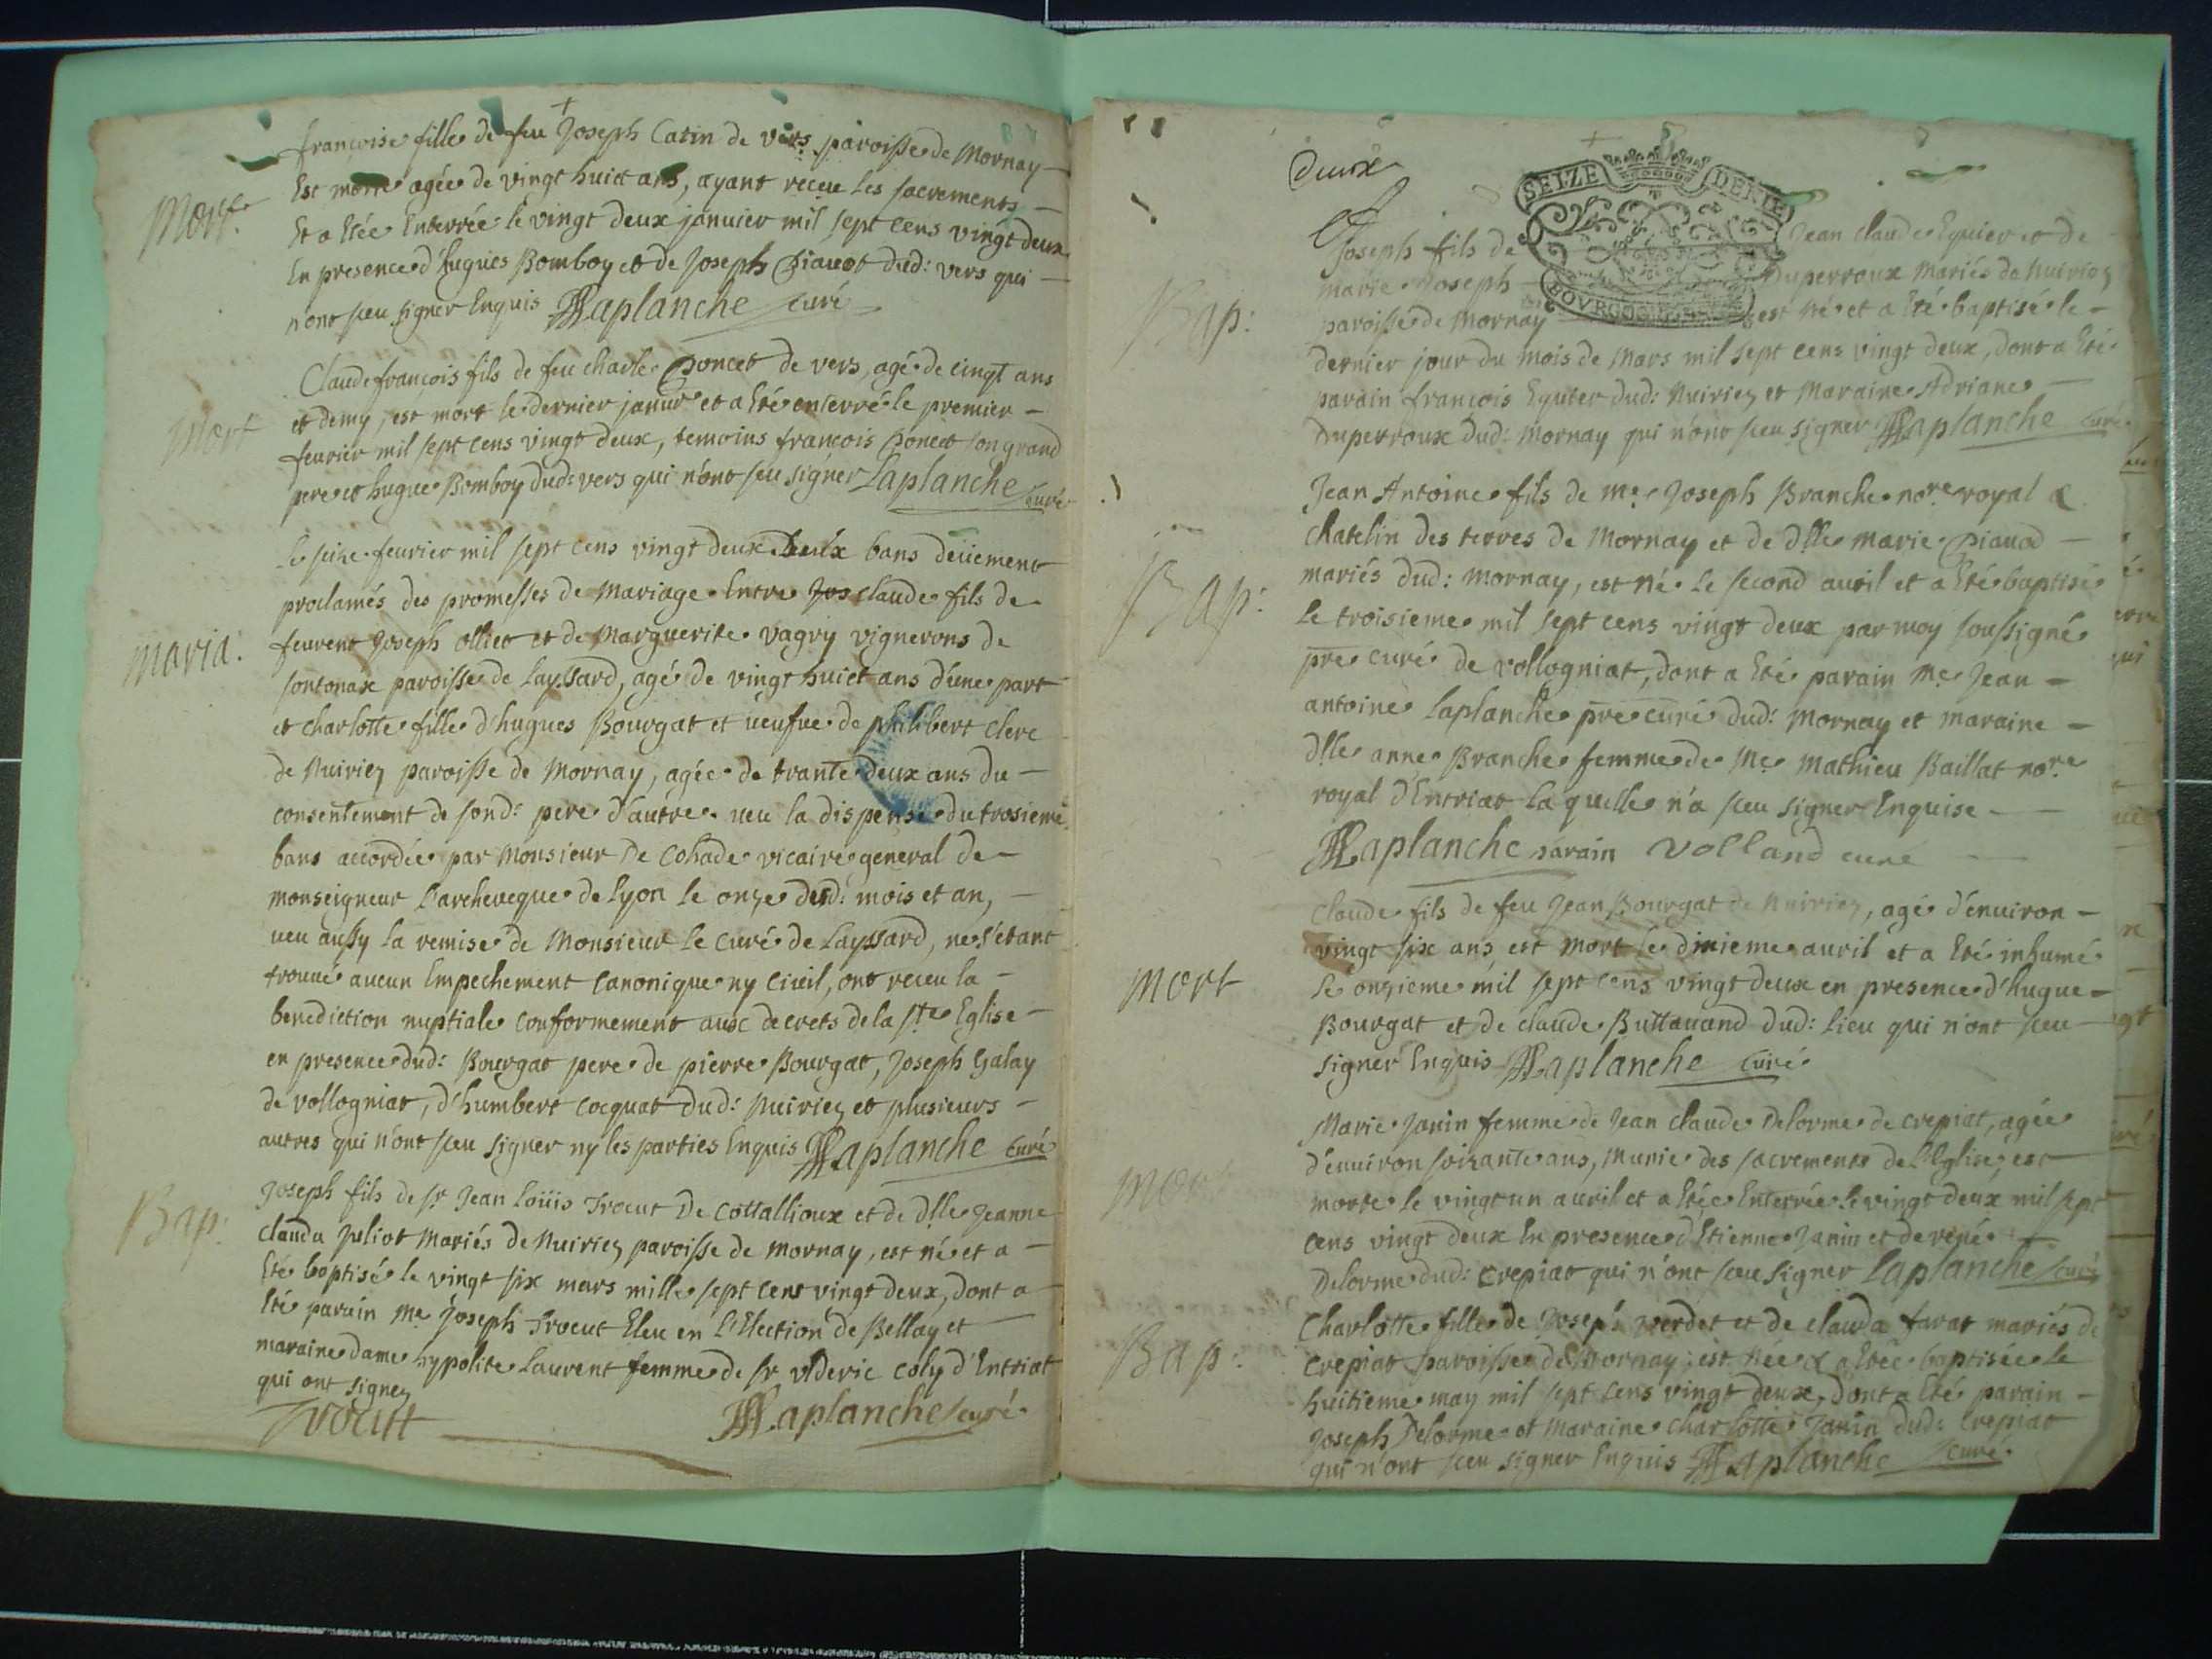 francoise fille de feu Joseph Catin de vers paroisse de Mornay
Mort.
Est morte agée de vingt huict ans, ayant receu les sacrements
Et a Etée Enterrée le vingt deux januier mil sept cens vingt deux
En presence d'hugues Bomboy et de Joseph Piauot dud: vers qui
n'ont sceu signer Enquis Laplanche curé
Claude françois fils de feu charle Poncet de vers, agé de cinqt ans
Mort
et demy, est mort le dernier januer et a Eté enterré le premier
feurier mil sept cens vingt deux, temoins francois Poncet son grand
pere et hugue Bomboy dud: vers qui n'ont sceu signer Laplanche curé
Le seize feurier mil sept cens vingt deux deux bans deüement
proclamés des promesses de Mariage Entre Jos claude fils de
maria:
feurent Joseph olliet et de Marguerite vagry vignerons de
sontonax paroisse de Layssard, agé de vingt huict ans d'une part
et charlotte fille d'hugues Bourgat et ueufue de philibert clerc
de Nuiriez paroisse de Mornay, agée de trante deux ans du
consentement de sond: pere d'autre. ueu la dispense du trosieme
bans accordée par Monsieur De Cohade vicaire general de
monseigneur L'archeueque de Lyon le onze desd: mois et an,
ueu aussy la remise de Monsieur le Curé de Layssard, ne s'etant
trouué aucun Empechement canonique ny ciuil, ont receu la
benediction nuptiale conformement aux decrets de la ste Eglise
en presence dud: Bourgat pere de pierre Bourgat, Joseph Galay
de vollogniat, d'humbert cocquat dud: Nuiriez et plusieurs
autres qui n'ont sceu signer ny les parties Enquis Laplanche curé
Bap:
Joseph fils de sr Jean Loüis Trocut De Cottallioux et de dlle Jeanne
clauda Juliot Mariés de Nuiriez paroisse de mornay, est né et a
Eté baptisé le vingt six mars mille sept cent vingt deux, dont a
Eté parain Me Joseph Trocut Eleu en L'Election de Bellay et
maraine dame hypolite Laurent femme de sr uderic coly d'Entriat
qui ont signez
Trocutt Laplanche curé
Deux
SEIZE DENIE
Joseph fils de Jean claude Eguier et de
marie Joseph Duperroux Mariés de Nuiriez
Bap:
paroisse de Mornay est né et a Eté baptisé le
dernier jour du mois de Mars mil sept cens vingt deux, dont a Eté
parain francois Eguier dud: Nuiriez et Maraine Adriane
Duperroux dud: Mornay qui n'ont sceu signer Laplanche curé
Jean Antoine fils de me Joseph Branche nore royal &
chatelin des terres de Mornay et de dlle marie Piaud
Bap:
mariés dud: mornay, est né le second auril et a Eté baptisé
Le troisieme mil sept cens vingt deux par moy soussigné
pre curé de vollogniat, dont a Eté parain Me Jean
antoine Laplanche pre curé dud: Mornay et maraine
dlle anne Branche femme de Me Mathieu Baillat nore
royal d'Entriat la quelle n'a sceu signer Enquise
Laplanche parain Volland curé
Claude fils de feu Jean Bourgat de Nuiriez, agé d'enuiron
Mort
vingt six ans, est mort le dixieme auril et a Eté inhumé
le onzieme mil sept cens vingt deux en presence d'hugue
Bourgat et de claude Buttauand dud: lieu qui n'ont sceu
signer Enquis Laplanche curé
Marie Janin femme de Jean claude Delorme de crepiat, agée
d'enuiron soixante ans, Munie des sacrements de L'Eglise, est
Mort
morte le vingt un auril et a Etée Enterrée le vingt deux mil sept
cens vingt deux En presence d'Etienne Janin et de rené
Delorme dud: crepiat qui n'ont sceu signer Laplanche curé
Charlotte fille de Joseph verdet et de clauda farat mariés de
Bap:
crepiat paroisse de Mornay; est née & a Etée baptisée le
huitieme may mil sept cens vingt deux, dont a Eté parain
Joseph Delorme et Maraine charlotte Janin dud: Crepiat
qui n'ont sceu signer Enquis Laplanche curé